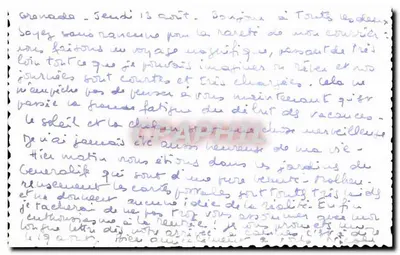 Grenade - Jeudi 13 août. Bonjour à toutes les deux
Soyez sans rancune pour la rareté de mon courrier.
nous faisons un voyage magnifique, passant de très
loin tout ce que je pouvais imaginer ou rêver et nos
journées sont courtes et très chargées. Cela ne
m'empêche pas de penser à vous maintenant qu'est
passée la grande fatigue du début des vacances.
Le soleil et la chaleur merveilleuse
Je n'ai jamais été aussi heureuse de ma vie.
Hier matin nous étions dans les jardins du
Generalife qui sont d'une pure beauté. Malheu-
reusement les cartes postales sont toutes très
et ne donnent aucune idée de la réalité. Enfin
je tâcherai de ne pas trop vous assommer avec mon
enthousiasme à la rentrée. Je vous promets une
longue lettre
le 19 août.